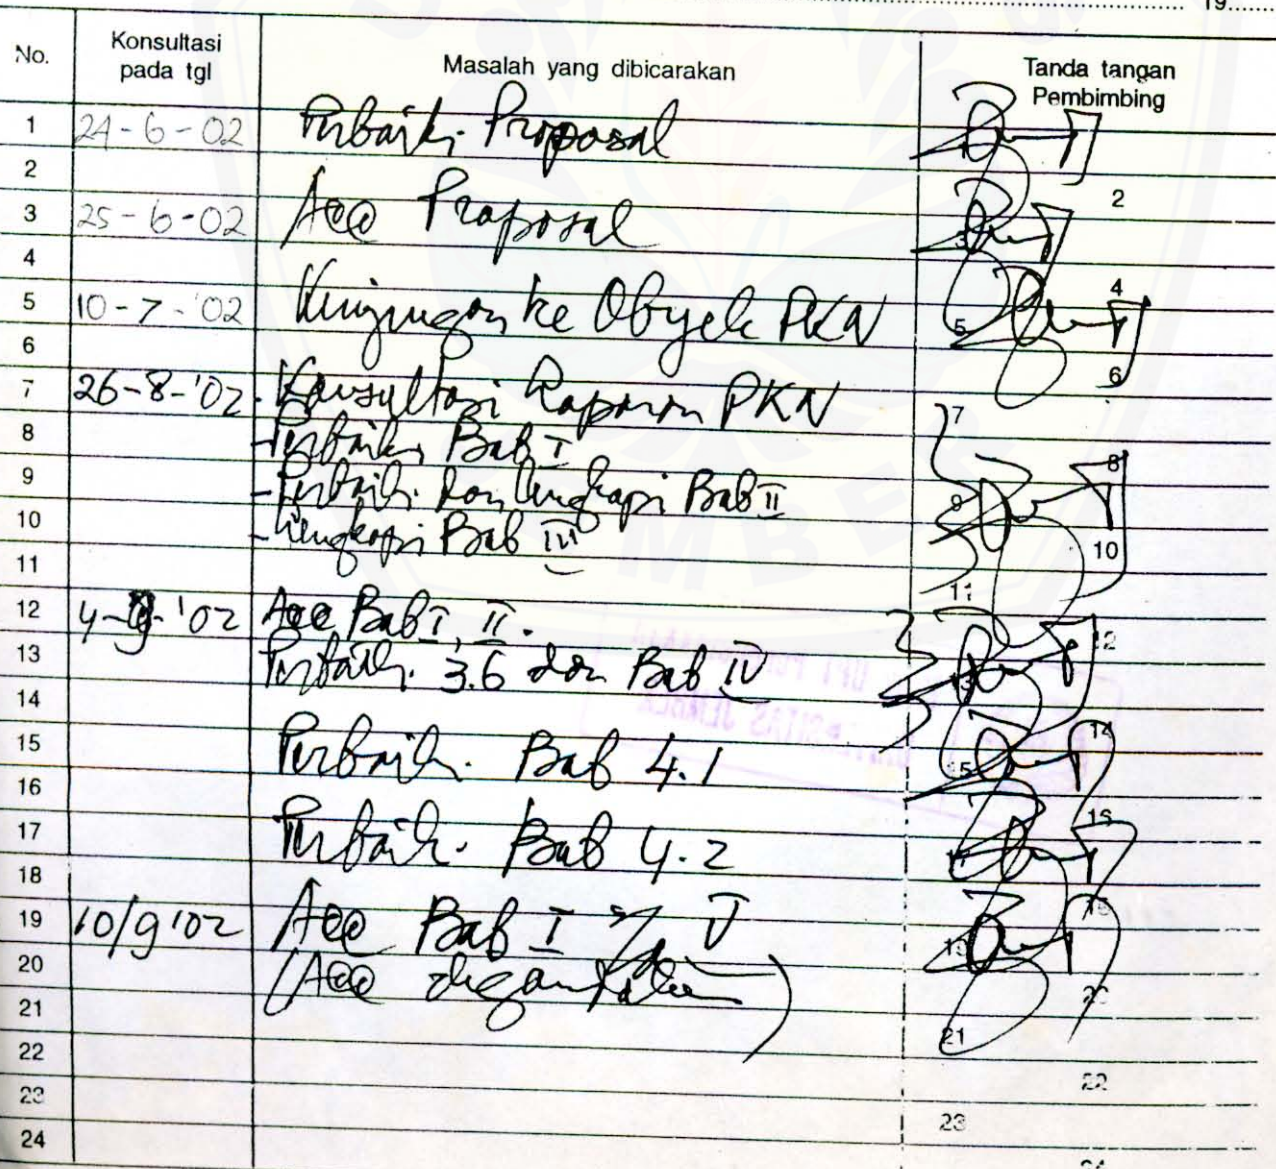 19........
No. Konsultasi pada tgl Masalah yang dibicarakan Tanda tangan Pembimbing
1 24-6-02 Perbaiki Proposal
2 2
3 25-6-02 Acc Proposal 3
4 4
5 10-7-'02 Kunjungan ke Obyek PKN 5
6 6
7 26-8-'02 - Konsultasi Laporan PKN 7
8 - Perbaiki Bab I 8
9 - Perbaiki dan lengkapi Bab II 9
10 - Lengkapi Bab III 10
11 11
12 4-9-'02 Acc Bab I, II. 12
13 Perbaiki 3.6 dan Bab IV 13
14 14
15 Perbaiki Bab 4.1 15
16 16
17 Perbaiki Bab 4.2 17
18 18
19 10/9'02 Acc Bab I s/d V 19
20 (Acc digandakan) 20
21 21
22 22
23 23
24 24